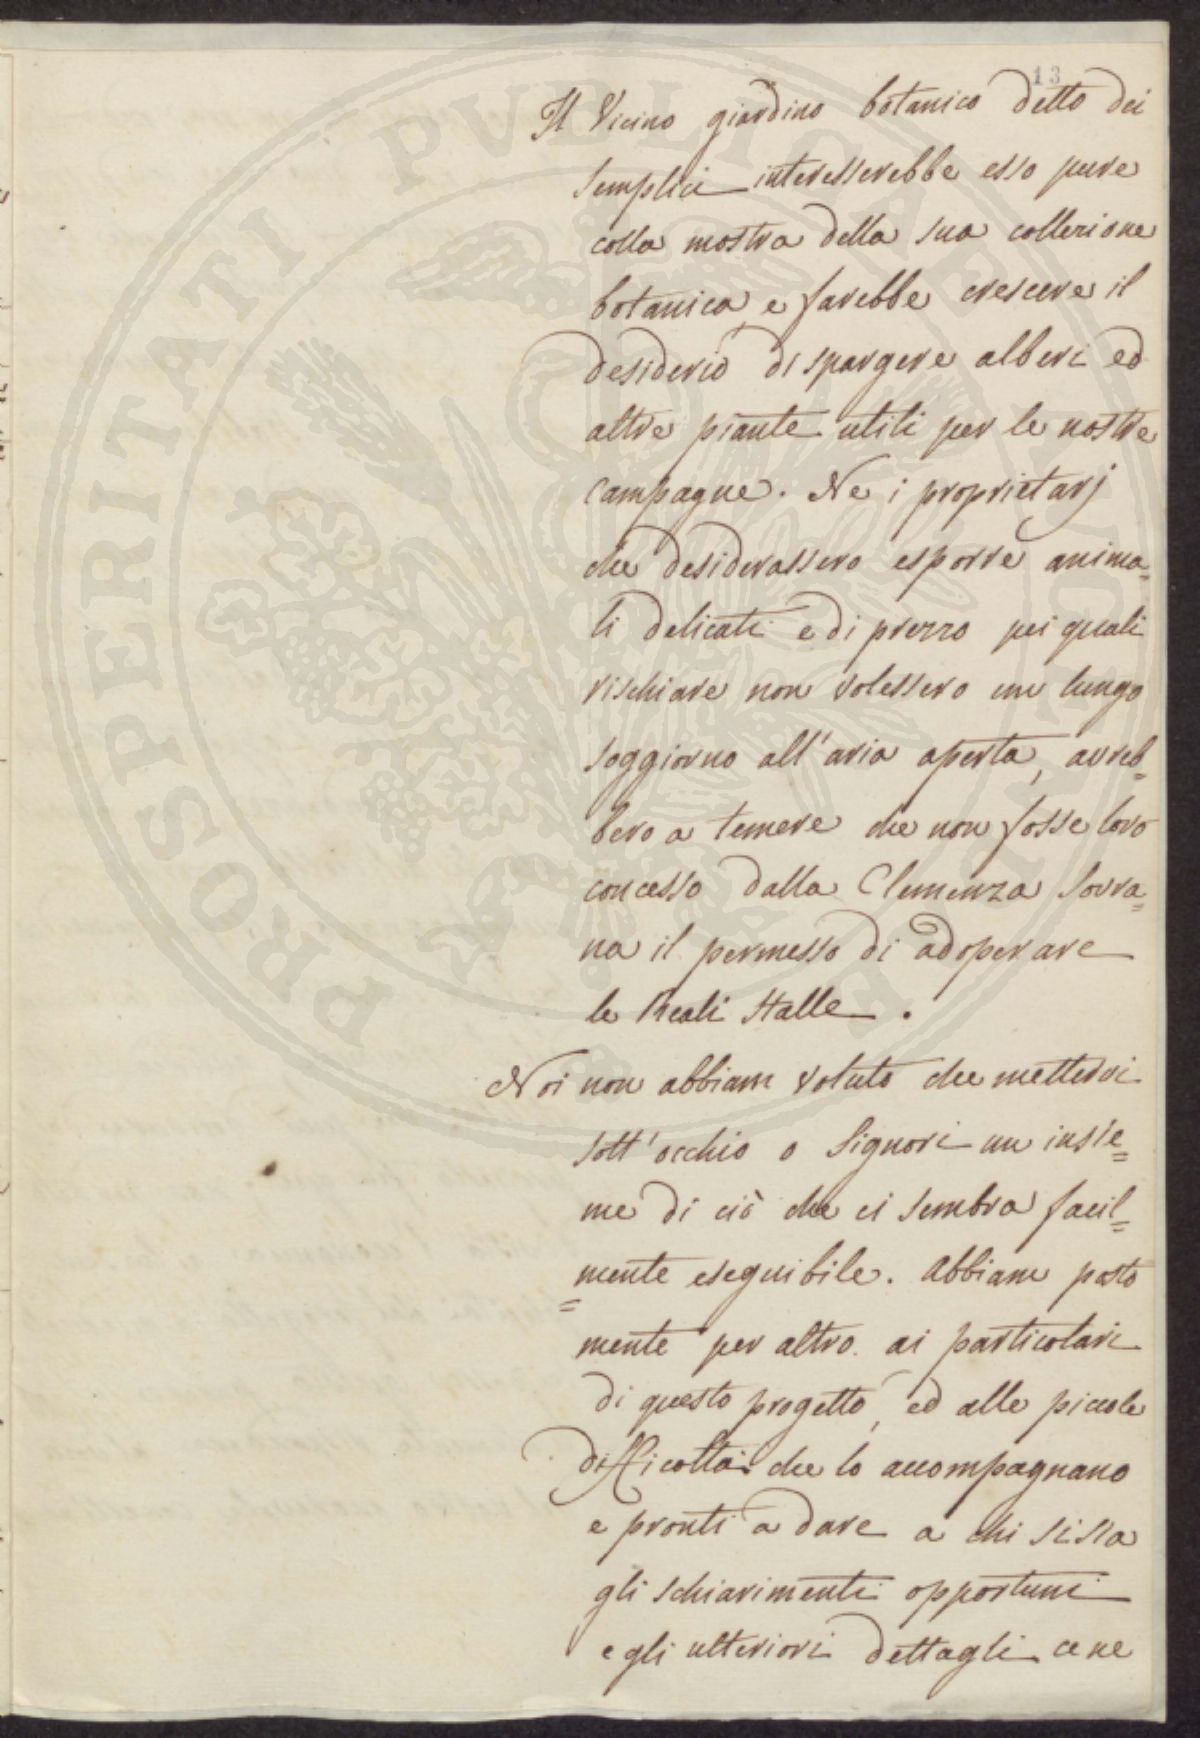 13
Il Vicino giardino botanico detto dei
Semplici interesserebbe esso pure
colla mostra della sua collezione
botanica, e farebbe crescere il
desiderio di spargere alberi ed
altre piante utili per le nostre
Campagne. Ne i proprietarj
che desiderassero esporre anima=
li delicati e di prezzo pei quali
rischiare non volessero un lungo
soggiorno all'aria aperta, avreb=
bero a temere che non fosse loro
concesso dalla Clemenza Sovra=
na il permesso di adoperare
le Reali Stalle.
Noi non abbiam voluto che mettervi
sott'occhio o Signori un insie=
me di ciò che ci sembra facil=
=mente eseguibile. Abbiam posto
mente per altro ai particolari
di questo progetto, ed alle piccole
difficoltà che lo accompagnano
e pronti a dare a chi si sia
gli schiarimenti opportuni
e gli ulteriori dettagli ce ne
PROSPERITATI PVBLICAE AVGENDAE